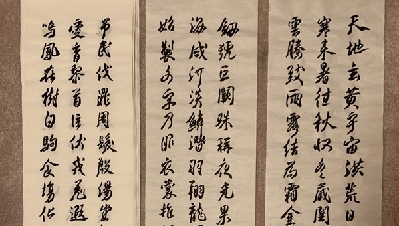 天地玄黃宇宙洪荒日
寒来暑往秋收冬藏閏
雲騰致雨露結為霜金
劒號巨闕珠稱夜光果
海咸河淡鱗潛羽翔龍
始製文字乃服衣裳推
弔民伐罪周發殷湯坐
愛育黎首臣伏戎羌遐
鳴鳳在樹白駒食場化